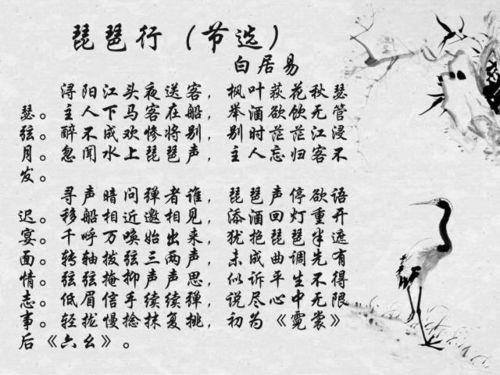 琵琶行（节选）
白居易
浔阳江头夜送客，枫叶荻花秋瑟
瑟。主人下马客在船，举酒欲饮无管
弦。醉不成欢惨将别，别时茫茫江浸
月。忽闻水上琵琶声，主人忘归客不
发。
寻声暗问弹者谁，琵琶声停欲语
迟。移船相近邀相见，添酒回灯重开
宴。千呼万唤始出来，犹抱琵琶半遮
面。转轴拨弦三两声，未成曲调先有
情。弦弦掩抑声声思，似诉平生不得
志。低眉信手续续弹，说尽心中无限
事。轻拢慢捻抹复挑，初为《霓裳》
后《六幺》。